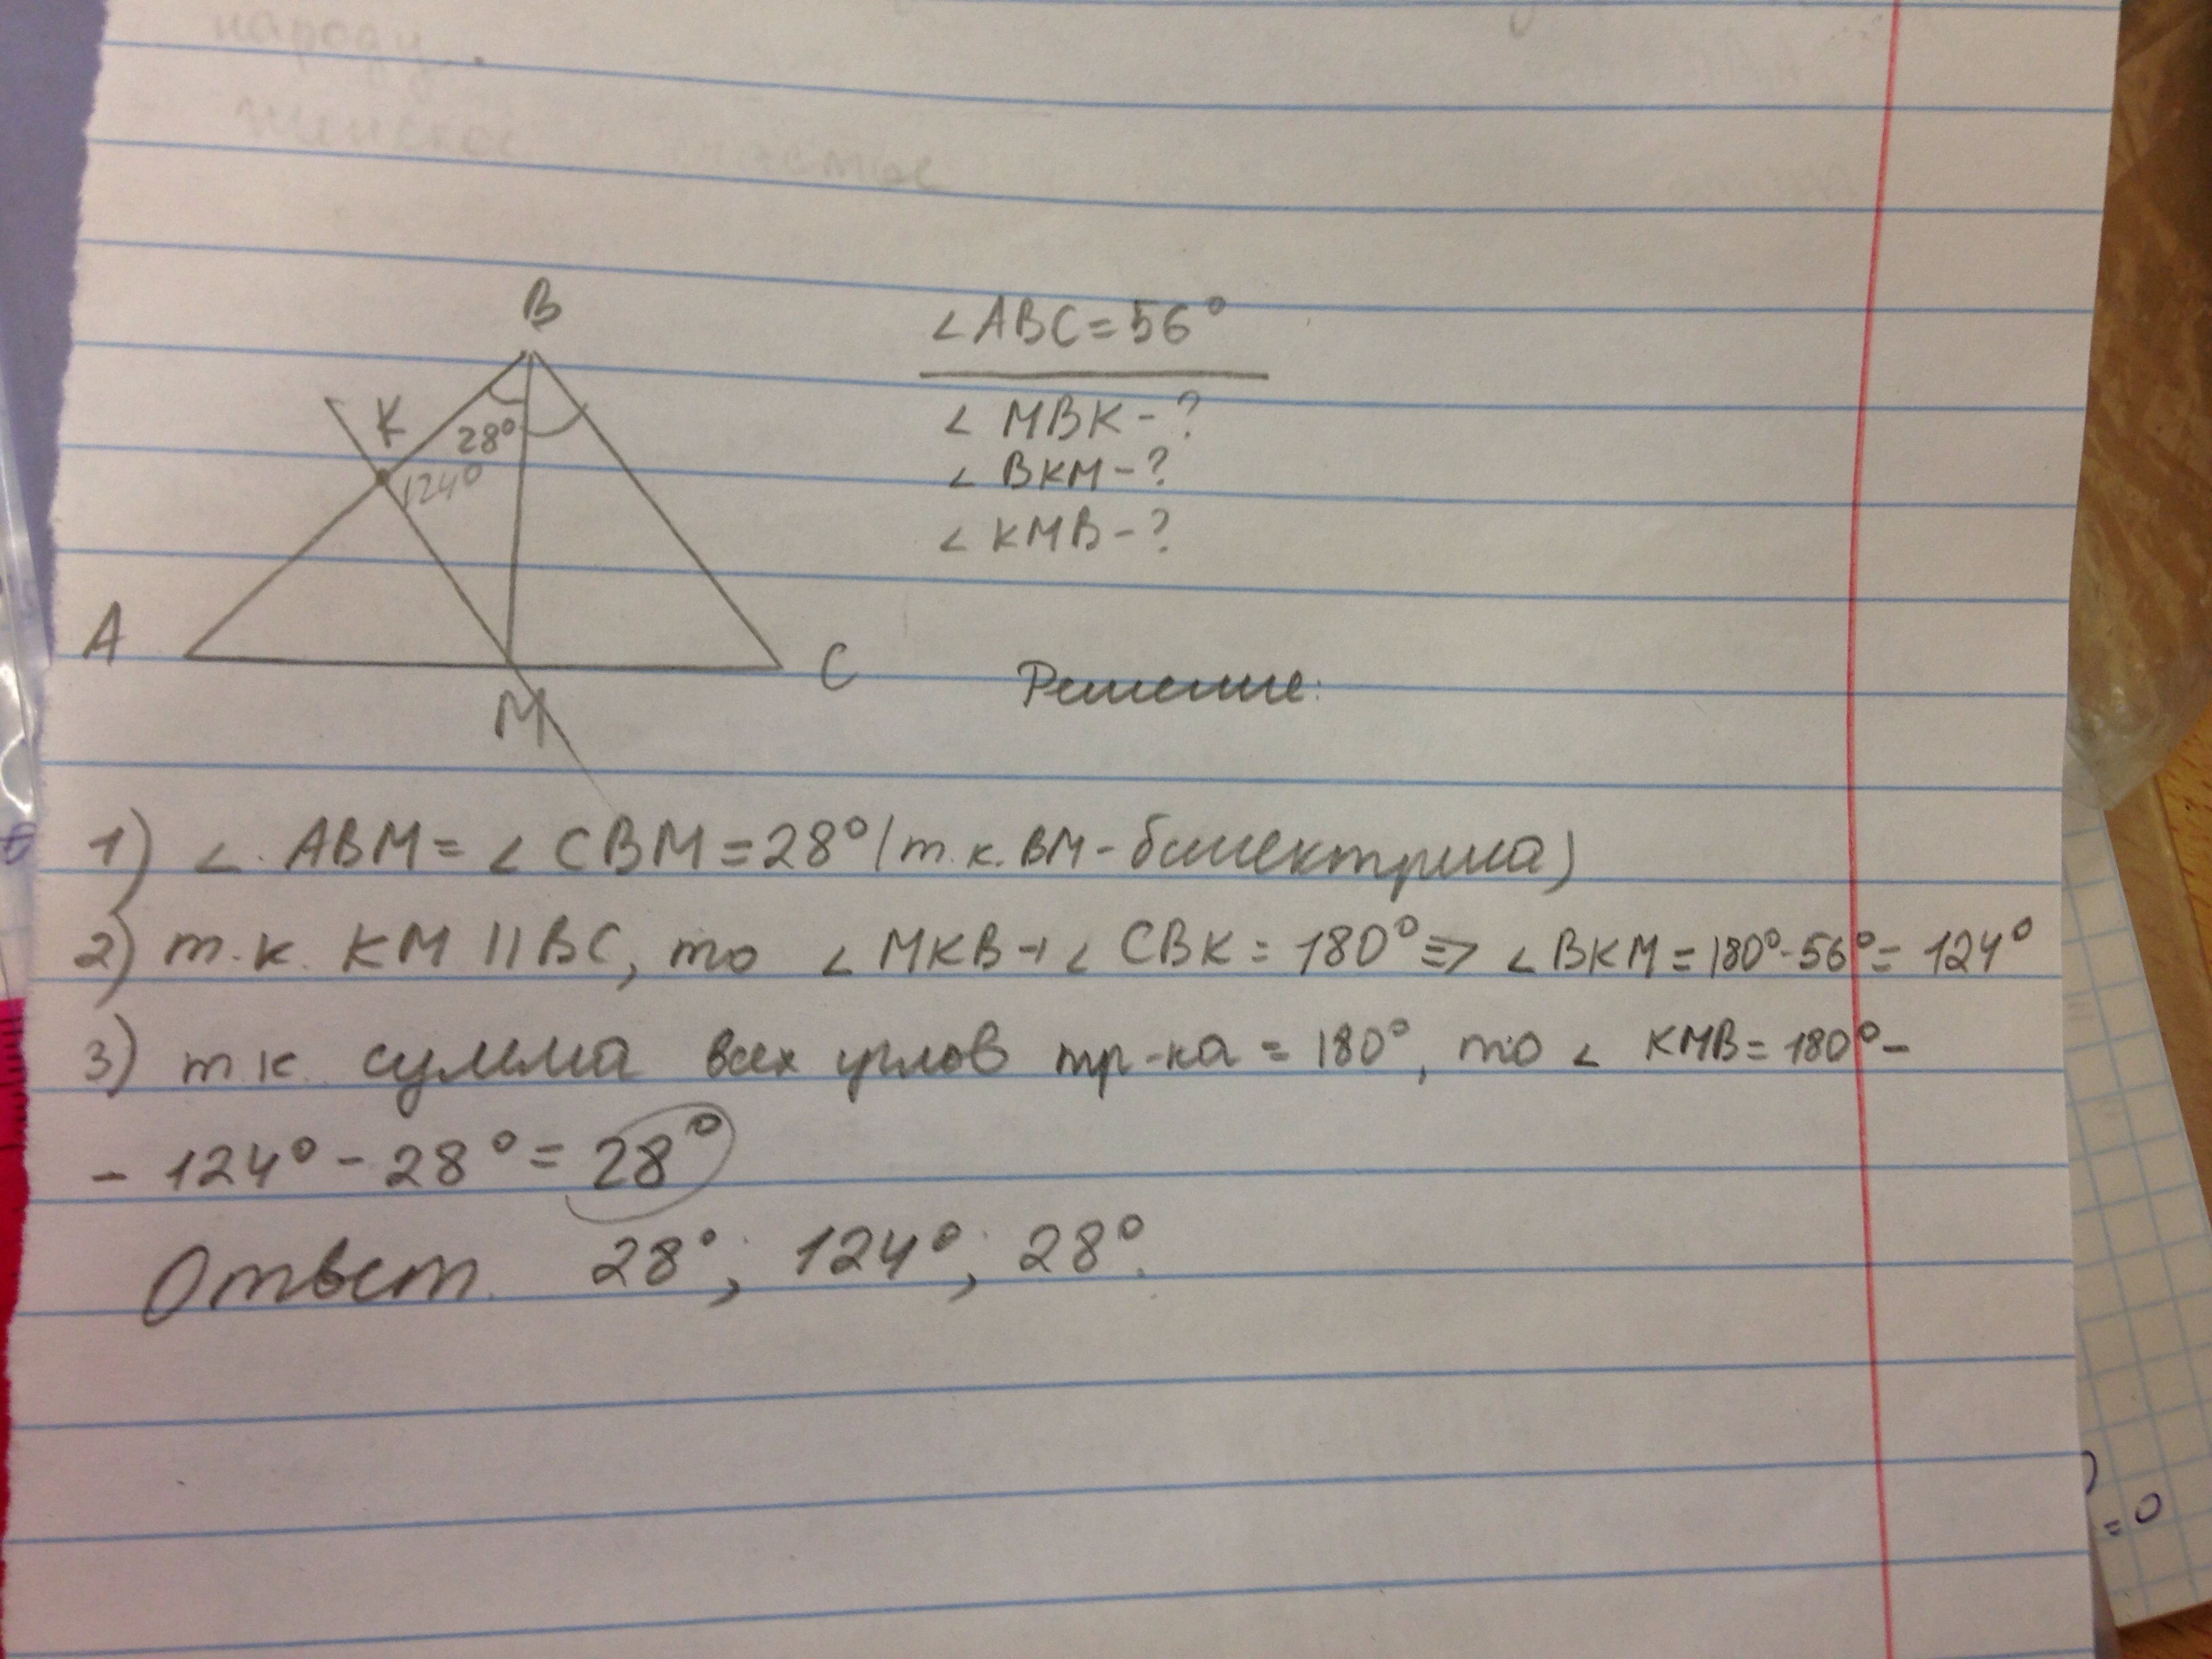 народу.
B
∠ABC=56°
K
28°
∠ MBK-?
124°
∠ BKM-?
∠ KMB-?
A
C
M
Решение:
1) ∠. ABM = ∠ CBM = 28° (т.к. BM - биссектриса)
2) т.к. KM || BC, то ∠ MKB + ∠ CBK = 180° => ∠ BKM = 180°-56° = 124°
3) т.к. сумма всех углов тр-ка = 180°, то ∠ KMB = 180° -
- 124° - 28° = 28°
Ответ. 28°; 124°; 28°.
=0